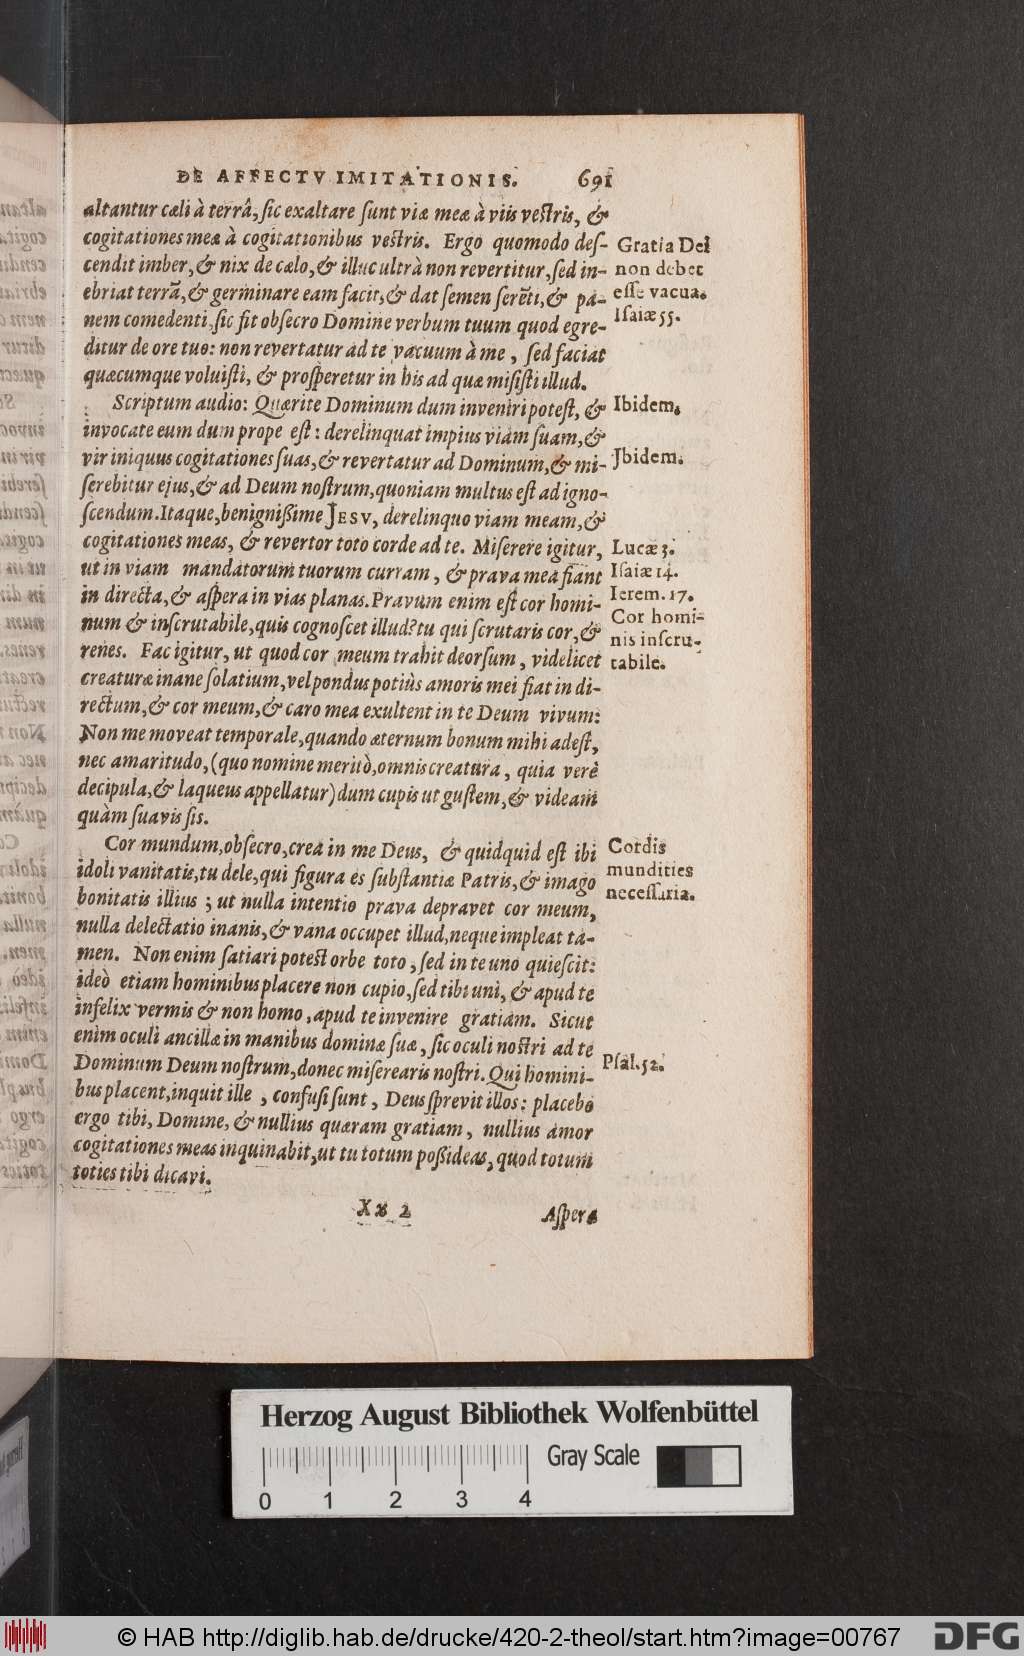 DE AFFECTV IMITATIONIS. 691
altantur cæli à terrâ, sic exaltare sunt viæ meæ à viis vestris, &
cogitationes meæ à cogitationibus vestris. Ergo quomodo des-
cendit imber, & nix de cælo, & illuc ultrà non revertitur, sed in-
ebriat terrã, & germinare eam facit, & dat semen serẽti, & pa-
nem comedenti, sic fit obsecro Domine verbum tuum quod egre-
ditur de ore tuo: non revertatur ad te vacuum à me, sed faciat
quæcumque voluisti, & prosperetur in his ad quæ misisti illud.
Gratia Dei
non debet
esse vacua.
Isaiæ 55.
Scriptum audio: Quærite Dominum dum inveniri potest, &
invocate eum dum prope est: derelinquat impius viam suam, &
vir iniquus cogitationes suas, & revertatur ad Dominum, & mi-
serebitur ejus, & ad Deum nostrum, quoniam multus est ad igno-
scendum. Itaque, benignißime JESV, derelinquo viam meam, &
cogitationes meas, & revertor toto corde ad te. Miserere igitur,
ut in viam mandatorum tuorum curram, & prava mea fiant
in directa, & aspera in vias planas. Pravum enim est cor homi-
num & inscrutabile, quis cognoscet illud? tu qui scrutaris cor, &
renes. Fac igitur, ut quod cor meum trahit deorsum, videlicet
creaturæ inane solatium, vel pondus potiùs amoris mei fiat in di-
rectum, & cor meum, & caro mea exultent in te Deum vivum:
Non me moveat temporale, quando æternum bonum mihi adest,
nec amaritudo, (quo nomine meritò, omnis creatura, quia verè
decipula, & laqueus appellatur) dum cupis ut gustem, & videam
quàm suavis sis.
Ibidem.
Jbidem.
Lucæ 3.
Isaiæ 14.
Ierem. 17.
Cor homi-
nis inscru-
tabile.
Cor mundum, obsecro, crea in me Deus, & quidquid est ibi
idoli vanitatis, tu dele, qui figura es substantiæ Patris, & imago
bonitatis illius; ut nulla intentio prava depravet cor meum,
nulla delectatio inanis, & vana occupet illud, neque impleat ta-
men. Non enim satiari potest orbe toto, sed in te uno quiescit:
ideò etiam hominibus placere non cupio, sed tibi uni, & apud te
infelix vermis & non homo, apud te invenire gratiam. Sicut
enim oculi ancillæ in manibus dominæ suæ, sic oculi nostri ad te
Dominum Deum nostrum, donec miserearis nostri. Qui homini-
bus placent, inquit ille, confusi sunt, Deus sprevit illos: placebo
ergo tibi, Domine, & nullius quæram gratiam, nullius amor
cogitationes meas inquinabit, ut tu totum poßideas, quod totum
toties tibi dicavi.
Cordis
mundities
necessaria.
Psal. 52.
Xx 2 Aspera
Herzog August Bibliothek Wolfenbüttel
Gray Scale
0 1 2 3 4
© HAB http://diglib.hab.de/drucke/420-2-theol/start.htm?image=00767
DFG